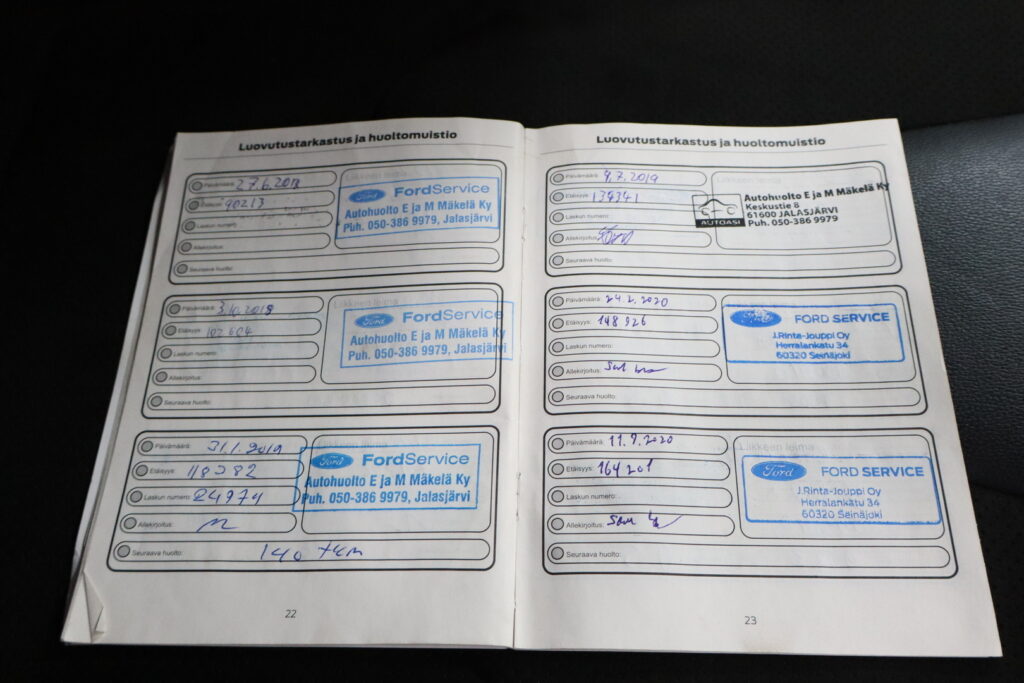 Luovutustarkastus ja huoltomuistio
Päivämäärä: 27.6.2018
Liikkeen leima
Etäisyys: 90213
Laskun numero:
Allekirjoitus:
Seuraava huolto:
Ford FordService
Autohuolto E ja M Mäkelä Ky
Puh. 050-386 9979, Jalasjärvi
Päivämäärä: 3.10.2018
Liikkeen leima
Etäisyys: 102604
Laskun numero:
Allekirjoitus:
Seuraava huolto:
Ford FordService
Autohuolto E ja M Mäkelä Ky
Puh. 050-386 9979, Jalasjärvi
Päivämäärä: 31.1.2019
Liikkeen leima
Etäisyys: 118382
Laskun numero: 24974
Allekirjoitus:
Seuraava huolto: 140 tkm
Ford FordService
Autohuolto E ja M Mäkelä Ky
Puh. 050-386 9979, Jalasjärvi
22
Luovutustarkastus ja huoltomuistio
Päivämäärä: 9.7.2019
Liikkeen leima
Etäisyys: 139341
Laskun numero:
Allekirjoitus:
Seuraava huolto:
AUTOASI
Autohuolto E ja M Mäkelä Ky
Keskustie 8
61600 JALASJÄRVI
Puh. 050-386 9979
Päivämäärä: 24.2.2020
Etäisyys: 148926
Laskun numero:
Allekirjoitus:
Seuraava huolto:
FORD SERVICE
J.Rinta-Jouppi Oy
Herralankatu 34
60320 Seinäjoki
Päivämäärä: 11.9.2020
Liikkeen leima
Etäisyys: 164201
Laskun numero:
Allekirjoitus:
Seuraava huolto:
Ford FORD SERVICE
J.Rinta-Jouppi Oy
Herralankatu 34
60320 Seinäjoki
23